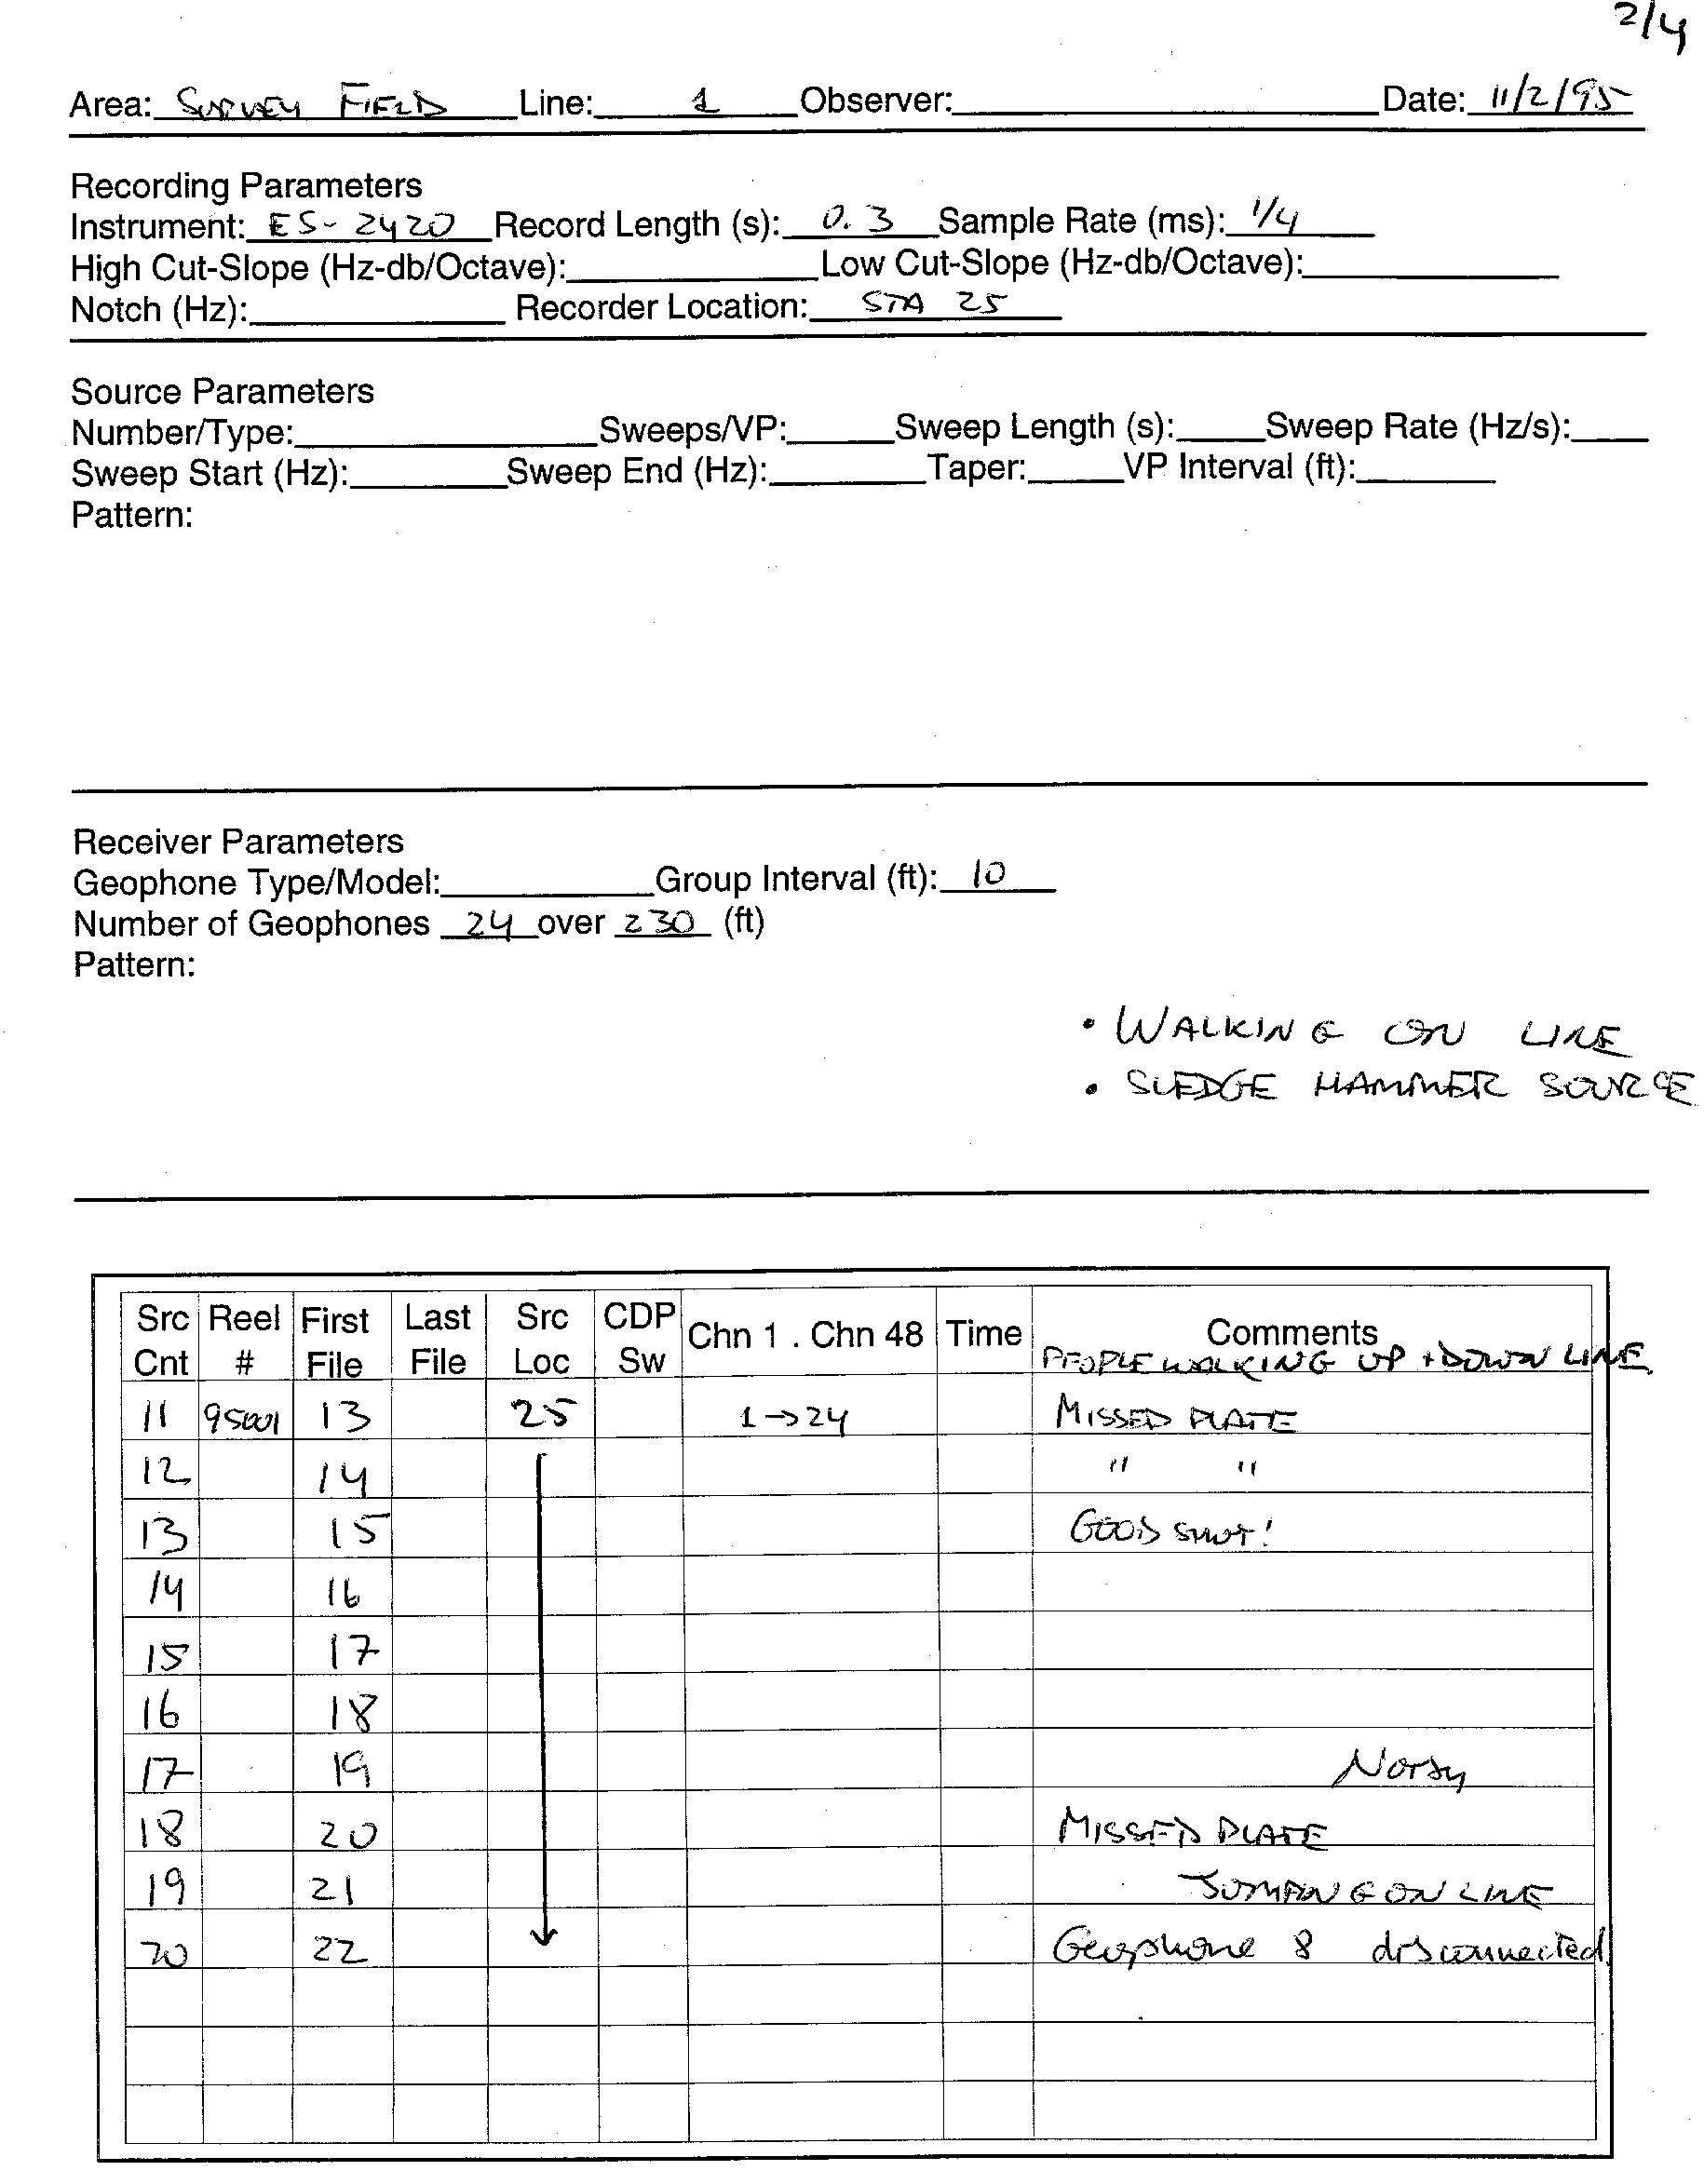 2/4
Area: SURVEY FIELD Line: 1 Observer: Date: 11/2/95
Recording Parameters
Instrument: ES-2420 Record Length (s): 0.3 Sample Rate (ms): 1/4
High Cut-Slope (Hz-db/Octave): Low Cut-Slope (Hz-db/Octave):
Notch (Hz): Recorder Location: STA 25
Source Parameters
Number/Type: Sweeps/VP: Sweep Length (s): Sweep Rate (Hz/s):
Sweep Start (Hz): Sweep End (Hz): Taper: VP Interval (ft):
Pattern:
Receiver Parameters
Geophone Type/Model: Group Interval (ft): 10
Number of Geophones 24 over 230 (ft)
Pattern:
• WALKING ON LINE
• SLEDGE HAMMER SOURCE
Src Cnt Reel # First File Last File Src Loc CDP Sw Chn 1 . Chn 48 Time Comments
PEOPLE WALKING UP + DOWN LINE
11 95001 13 25 1→24 MISSED PLATE
12 14 " "
13 15 GOOD SHOT!
14 16
15 17
16 18
17 19 NOISY
18 20 MISSED PLATE
19 21 JUMPING ON LINE
20 22 Geophone 8 disconnected